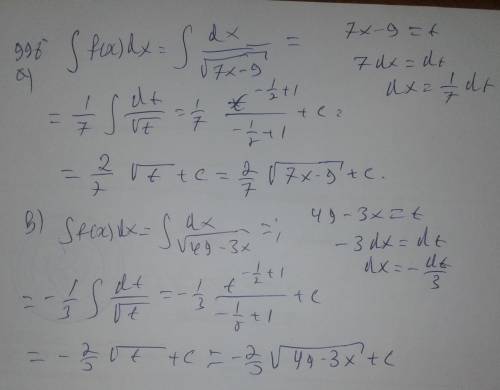 996
а) ∫ f(x) dx = ∫ dx/√(7x-9) =
7x-9=t
7dx=dt
dx=1/7 dt
= 1/7 ∫ dt/√t = 1/7 t^(-1/2+1)/(-1/2+1) + c =
= 2/7 √t + c = 2/7 √(7x-9) + c.
в) ∫f(x)dx = ∫ dx/√(49-3x) =;
49-3x=t
-3dx=dt
dx=-dt/3
= -1/3 ∫ dt/√t = -1/3 t^(-1/2+1)/(-1/2+1) + c
= -2/3 √t + c = -2/3 √(49-3x) + c